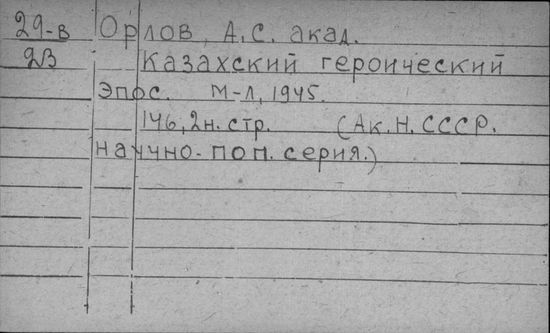 29-в Орлов, А.С. акад.
23 Казахский героический
эпос. М-Л, 1945.
146, 2н. стр. (Ак. Н. СССР.
научно-поп. серия.)